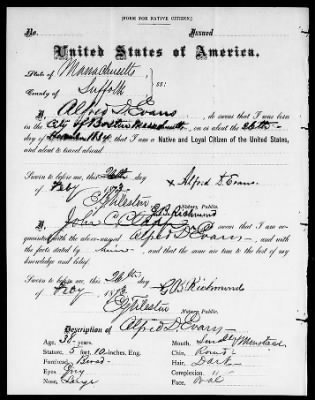 [FORM FOR NATIVE CITIZEN.]
No. Issued
United States of America.
State of Massachusetts
County of Suffolk } ss:
I, Alfred D. Evans, do swear that I was born
in the City of Boston Massachusetts, on or about the 26th
day of 1834; that I am a Native and Loyal Citizen of the United States,
and about to travel abroad.
Sworn to before me, this 26th day
of Feby 1873 x Alfred D. Evans.
Notary Public.
I, John C. do swear that I am ac-
quainted with the above-named Alfred D. Evans, and with
the facts stated by him, and that the same are true to the best of my
knowledge and belief.
Sworn to before me, this 26th day
of Feby 1873
Notary Public.
Description of Alfred D. Evans
Age, 38 years. Mouth,
Stature, 5 feet, 10 inches, Eng. Chin, Round
Forehead, Broad Hair, Dark
Eyes, Grey Complexion, "
Nose, Large Face, Oval